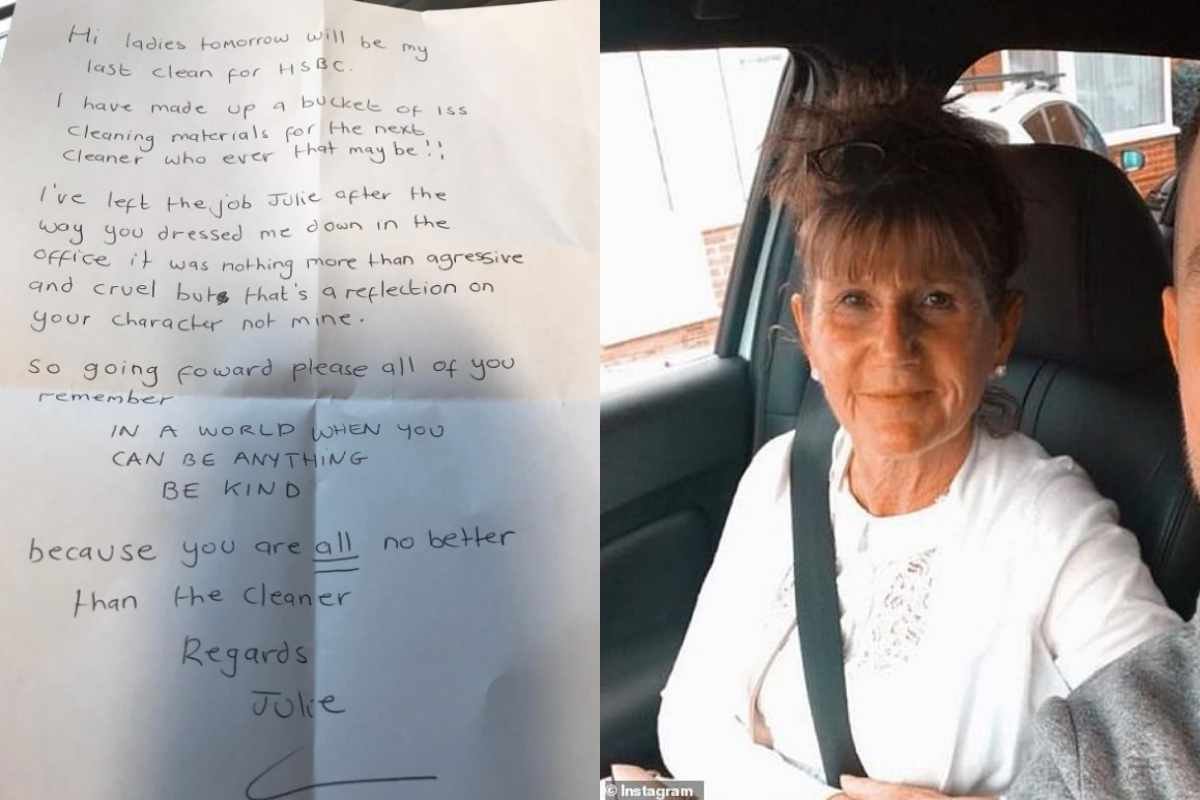 Hi ladies tomorrow will be my
last clean for HSBC.
I have made up a bucket of iss
cleaning materials for the next
cleaner who ever that may be!!
I've left the job Julie after the
way you dressed me down in the
office it was nothing more than agressive
and cruel but that's a reflection on
your character not mine.
so going foward please all of you
remember
IN A WORLD WHEN YOU
CAN BE ANYTHING
BE KIND
because you are all no better
than the cleaner
Regards
Julie
© Instagram